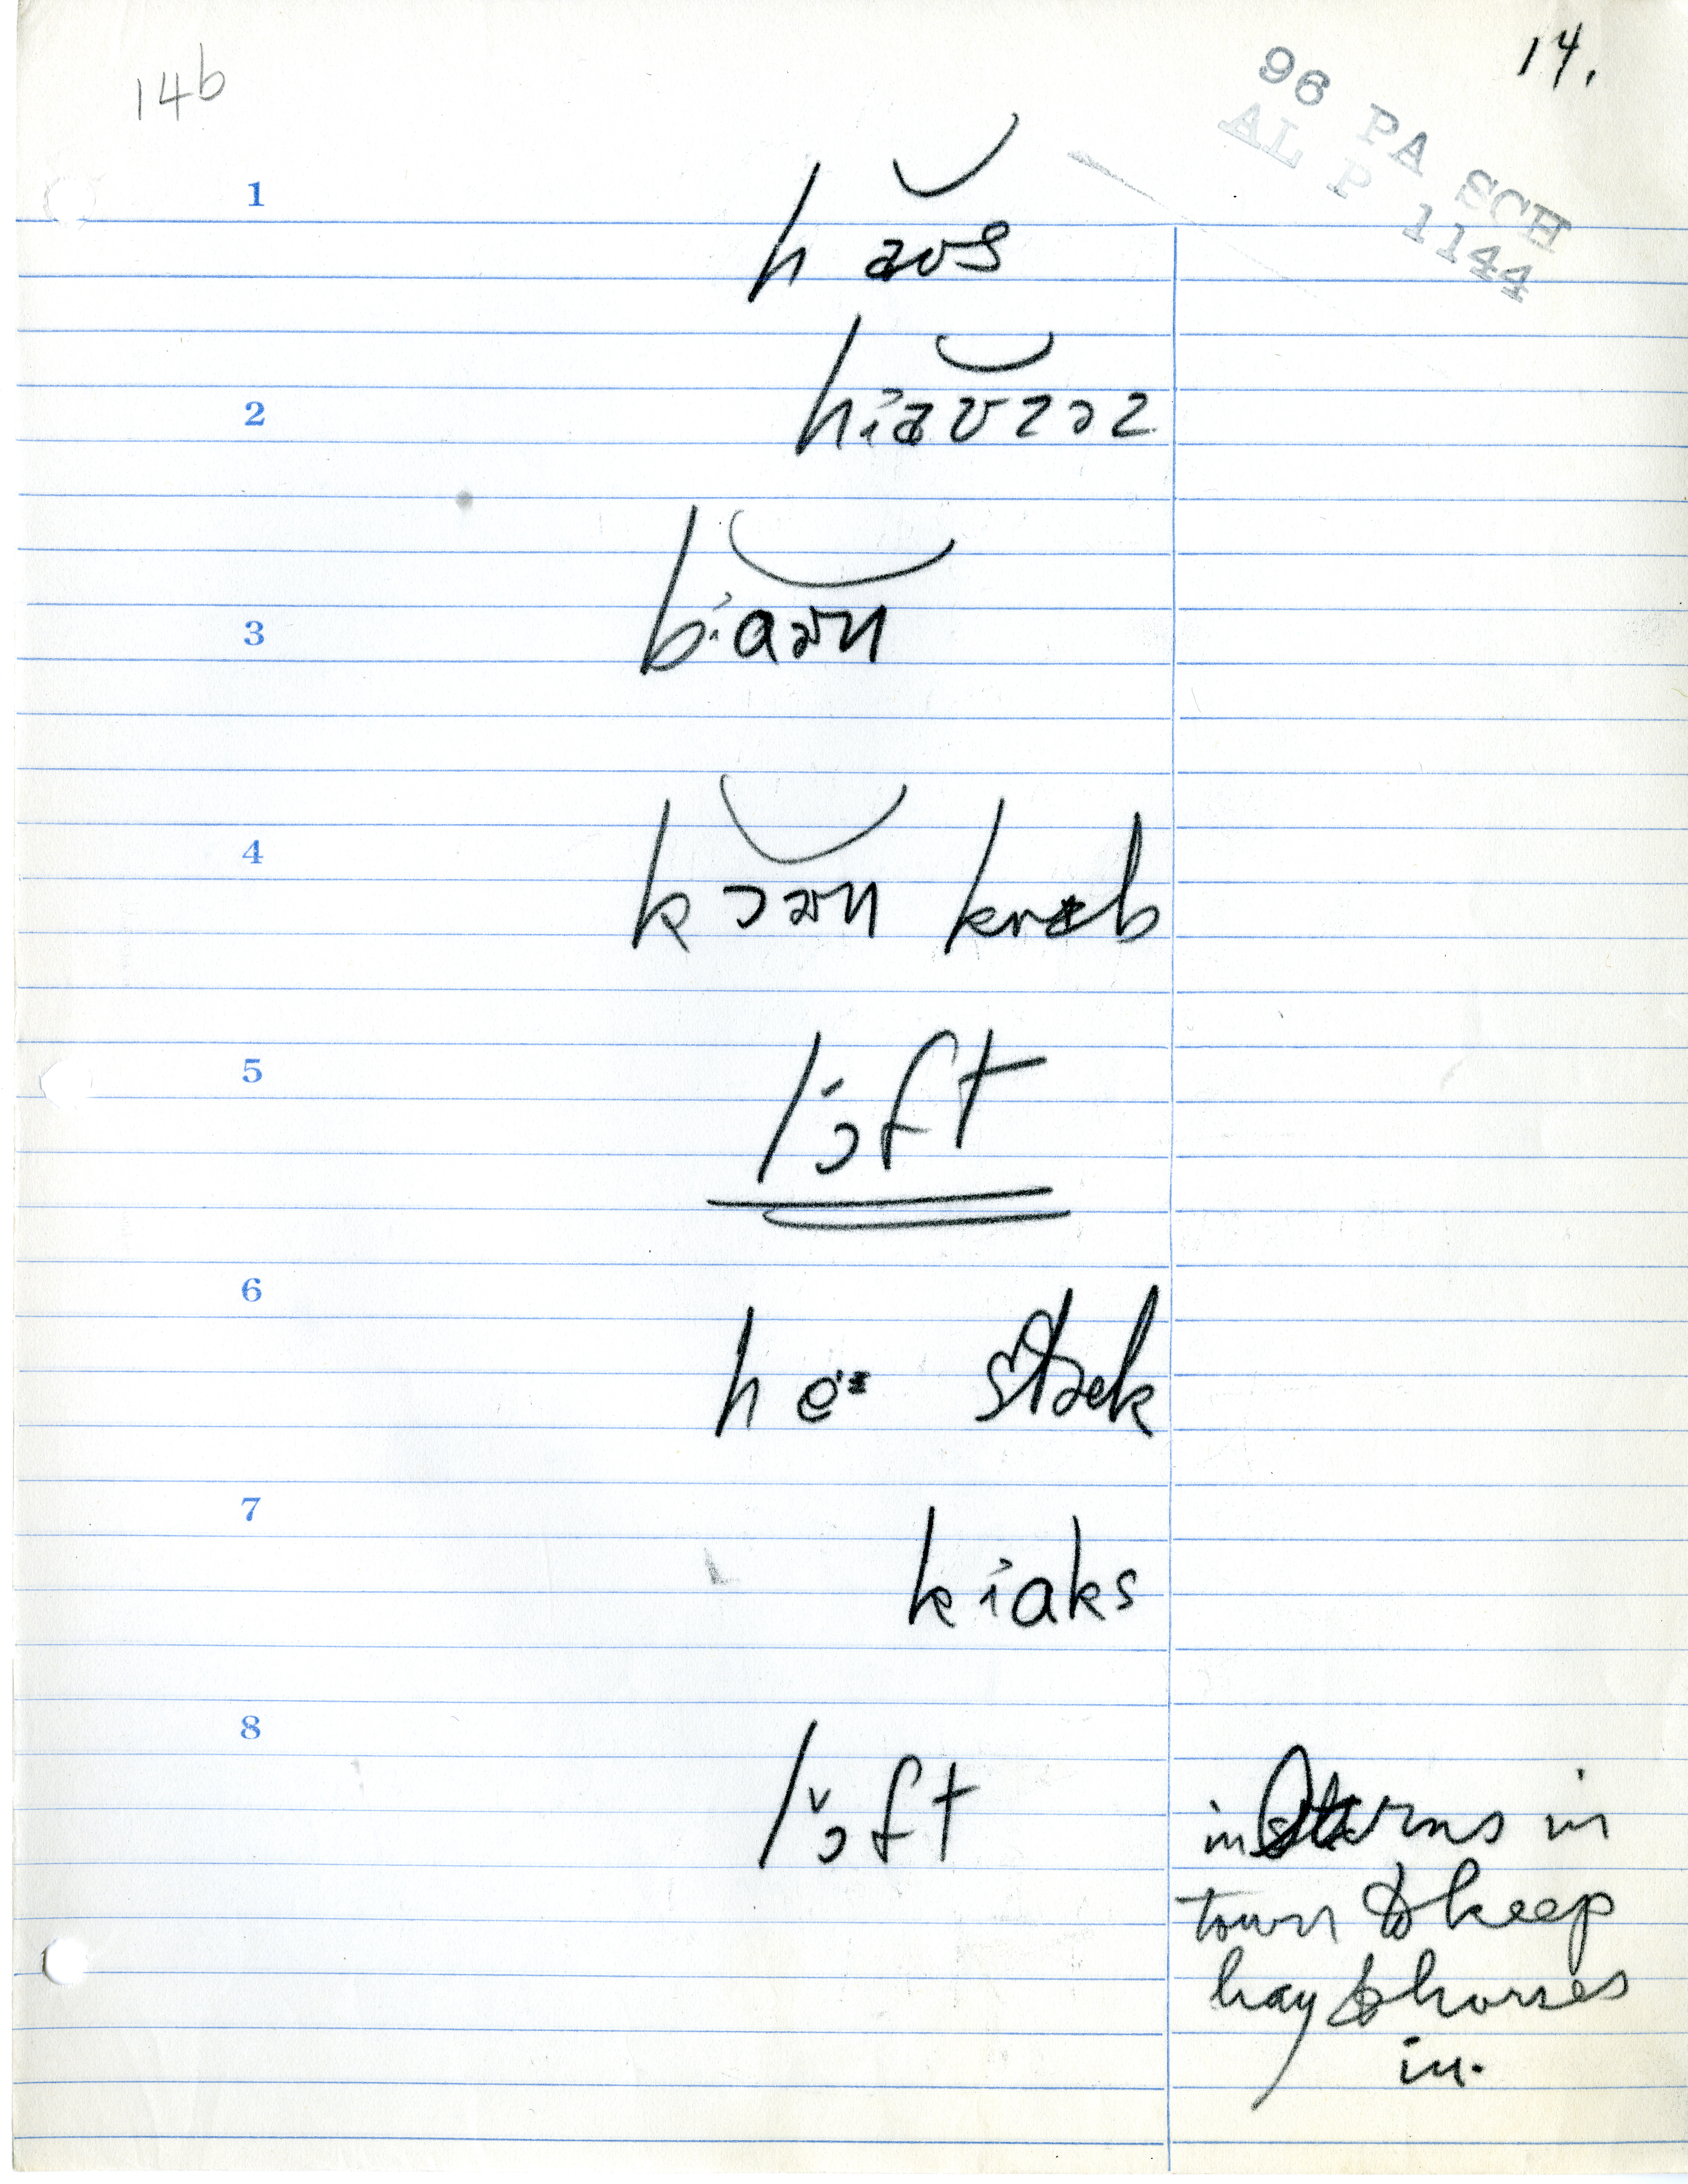 14b
14.
96 PA SCH
AL P 1144
1
haʊs
2
hiaʊzəz
3
biaɚn
4
kɔɚn krɪb
5
lɔft
6
he stæk
7
kiaks
8
lɔft
in barns in
town to keep
hay & horses
in.